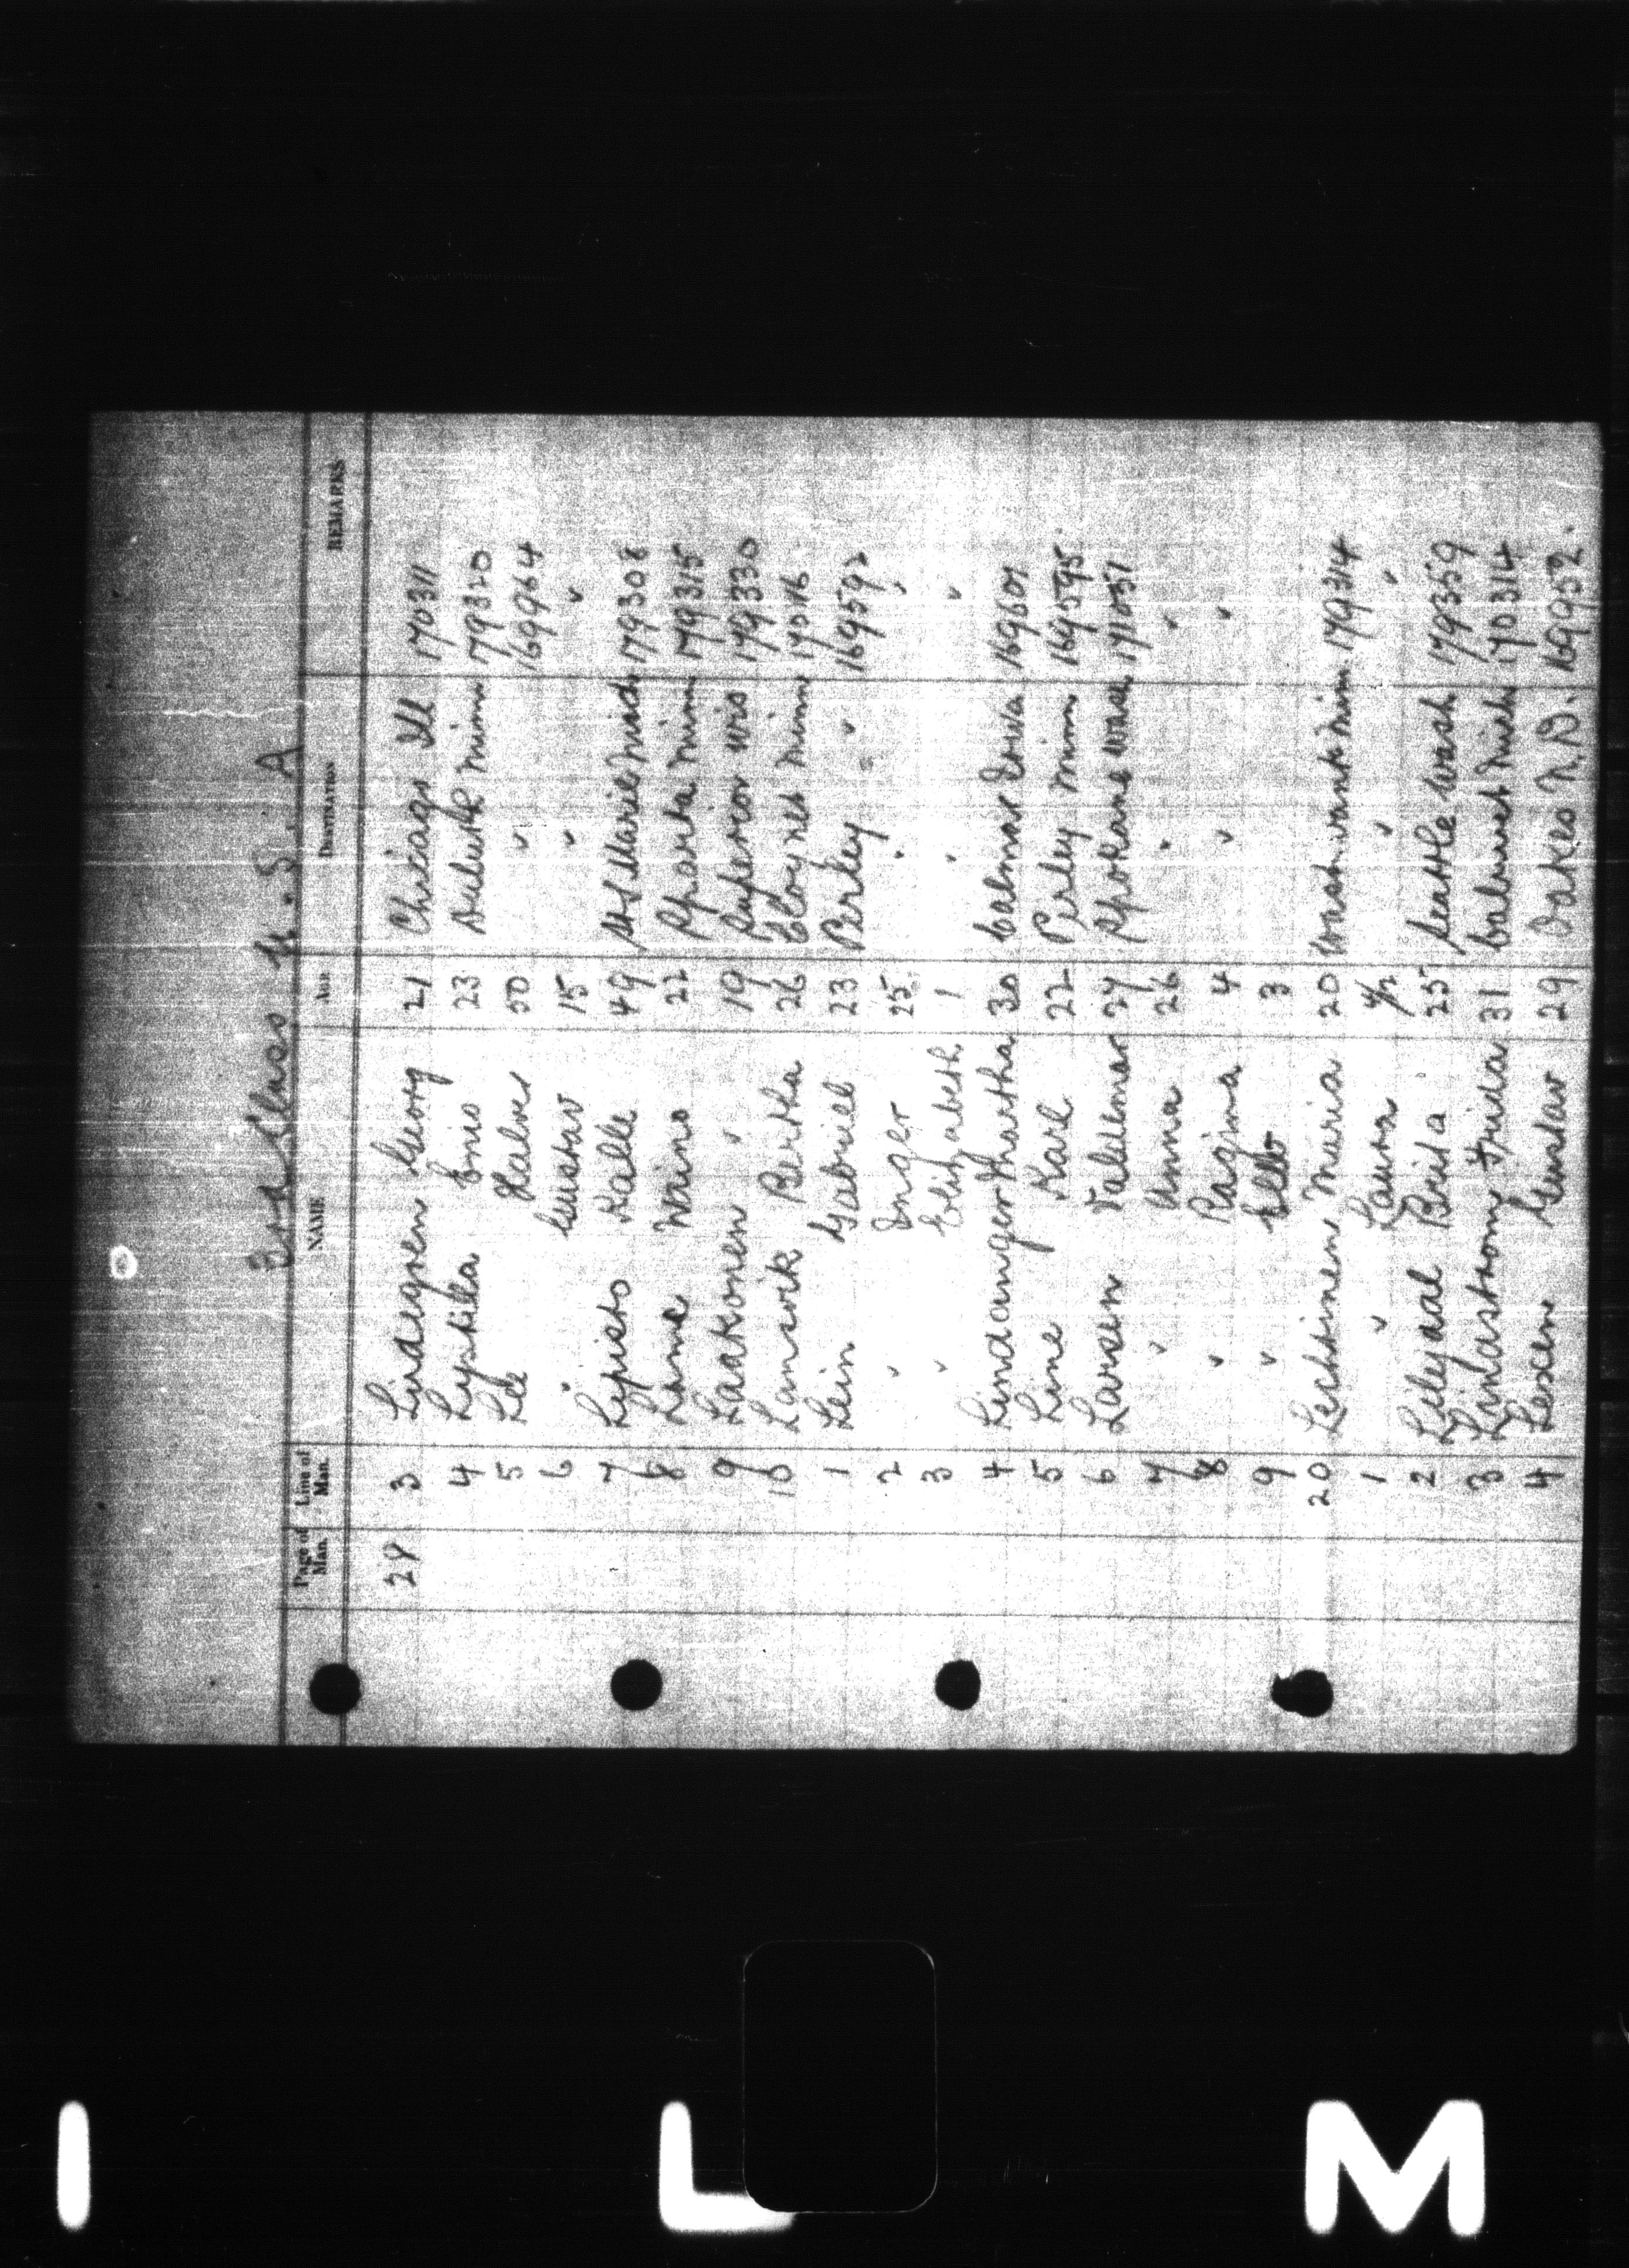 3rd Class U.S.A
Page of Man. Line of Man. NAME AGE DESTINATION REMARKS
28 3 Lindagren Georg 21 Chicago Ill 170311
4 Lystila Enis 23 Duluth Minn 179320
5 Lee Halver 50 " 169964
6 " Gustav 15 " "
7 Lepisto Kalle 49 St Marie Mich 179308
8 Lame Waino 22 Sparta Minn 179315
9 Laakonen " 19 Superior Wis 179330
10 Lansvik Bertha 26 Cloynet Minn 17016
1 Lein Gabriel 23 Perley " 169592
2 " Inger 25 " "
3 " Elizabeth 1 " "
4 Lindanger Martha 30 Calmar Iowa 169601
5 Line Karl 22 Perley Minn 169595
6 Larsen Valdemar 27 Spokane Wash 171051
7 " Anna 26 " "
8 " Ragina 4 " "
9 " 3
20 Lechtinen Maria 20 Minn 179314
1 " Laura " "
2 Brita 25 Seattle Wash 179359
3 Frida 31 Calumet Mich 170314
4 Lexen Gustav 29 Oakes N.D. 169952.
I L M